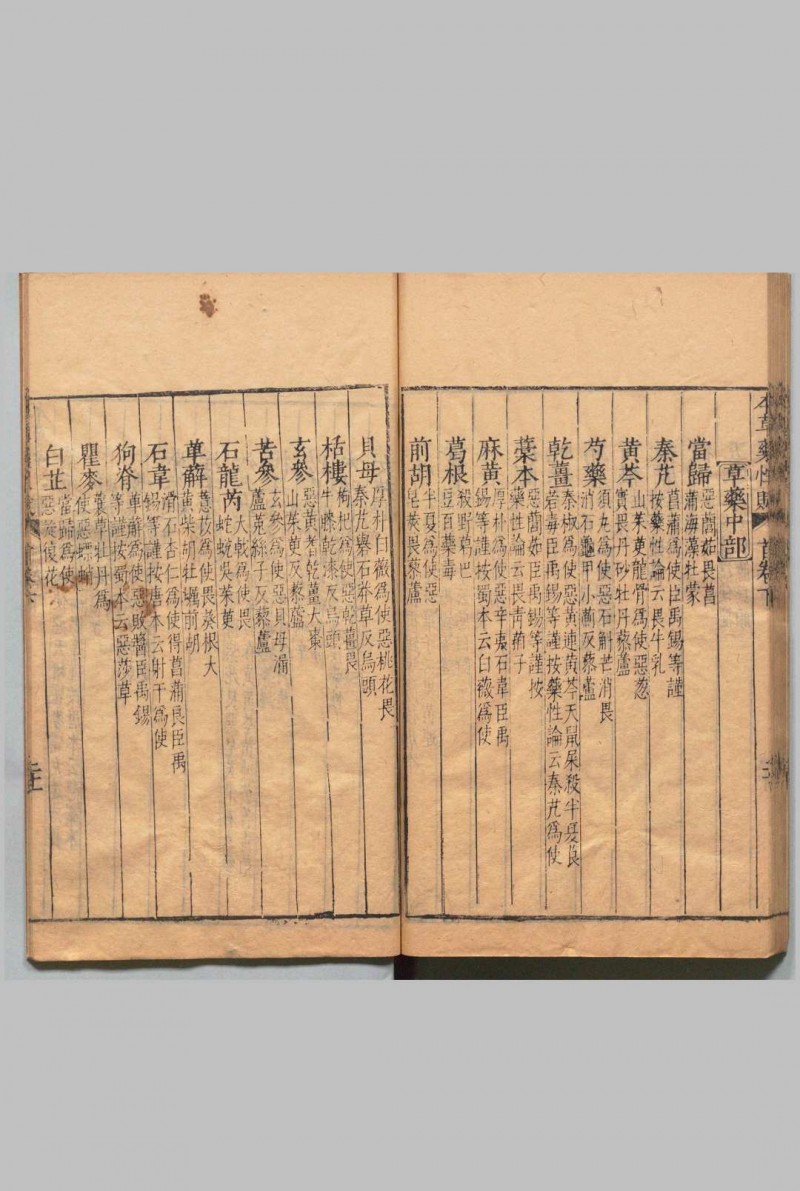 草藥中部
當歸 惡䕡茹畏菖蒲海藻牡蒙
秦艽 菖蒲為使臣禹錫等謹按藥性論云畏牛乳
黃芩 山茱萸龍骨為使惡葱實畏丹砂牡丹藜蘆
芍藥 須丸為使惡石斛芒消畏消石鱉甲小薊反藜蘆
乾薑 秦椒為使惡黃連黃芩天鼠屎殺半夏莨菪毒臣禹錫等謹按藥性論云秦艽為使
藁本 惡䕡茹臣禹錫等謹按藥性論云畏青葙子
麻黃 厚朴為使惡辛夷石韋臣禹錫等謹按蜀本云白薇為使
葛根 殺野葛巴豆百藥毒
前胡 半夏為使惡皂莢畏藜蘆
貝母 厚朴白薇為使惡桃花畏秦艽礬石莽草反烏頭
栝樓 枸杞為使惡乾薑畏牛膝乾漆反烏頭
玄參 惡黃耆乾薑大棗山茱萸反藜蘆
苦參 玄參為使惡貝母漏蘆菟絲子反藜蘆
石龍芮 大戟為使畏蛇蛻吳茱萸
萆薢 薏苡為使畏葵根大黃柴胡牡蠣前胡
石韋 滑石杏仁為使得菖蒲良臣禹錫等謹按唐本云射干為使
狗脊 萆薢為使惡敗醬臣禹錫等謹按蜀本云惡莎草
瞿麥 蘘草牡丹為使惡螵蛸
白芷 當歸為使惡旋復花